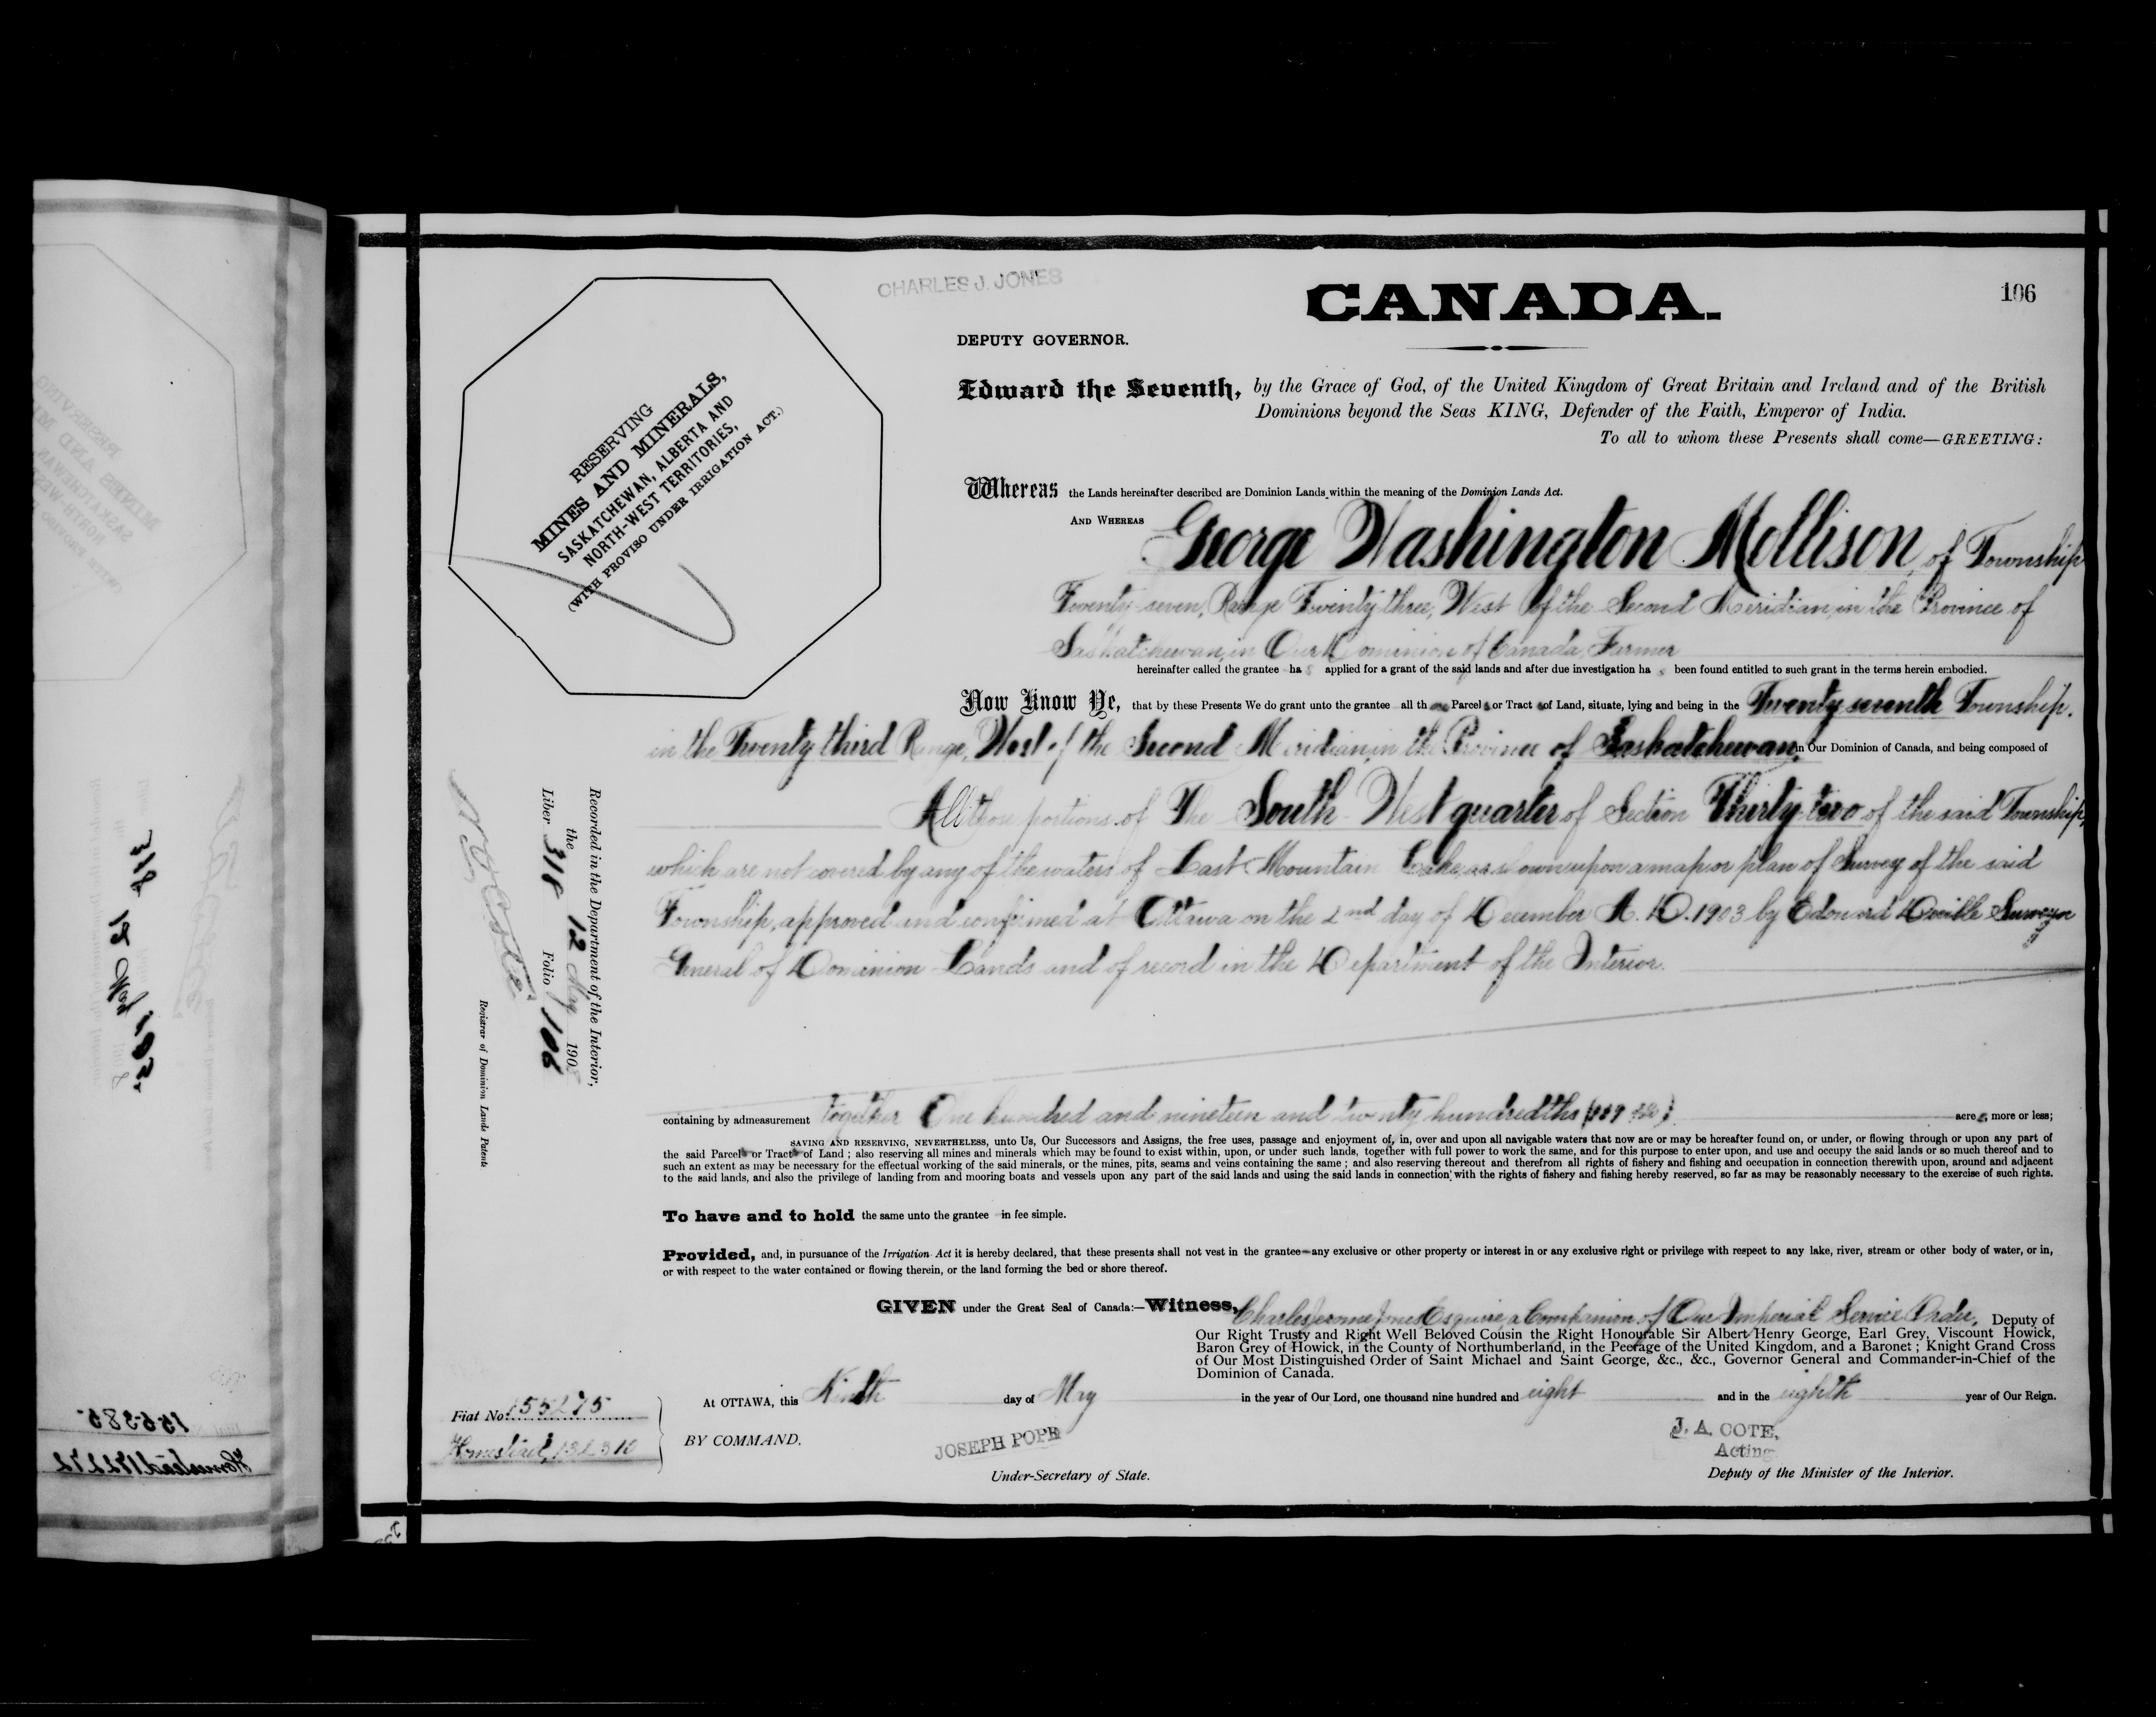 CHARLES J. JONES
CANADA.
106
DEPUTY GOVERNOR.
RESERVING
MINES AND MINERALS,
SASKATCHEWAN, ALBERTA AND
NORTH-WEST TERRITORIES,
(WITH PROVISO UNDER IRRIGATION ACT.)
Edward the Seventh, by the Grace of God, of the United Kingdom of Great Britain and Ireland and of the British
Dominions beyond the Seas KING, Defender of the Faith, Emperor of India.
To all to whom these Presents shall come—GREETING:
Whereas the Lands hereinafter described are Dominion Lands within the meaning of the Dominion Lands Act.
AND WHEREAS George Washington Mollison, of Township
Twenty-seven, Range Twenty three, West of the Second Meridian, in the Province of
Saskatchewan, in Our Dominion of Canada, Farmer
hereinafter called the grantee has applied for a grant of the said lands and after due investigation has been found entitled to such grant in the terms herein embodied.
Now Know Ye, that by these Presents We do grant unto the grantee all those Parcels or Tracts of Land, situate, lying and being in the Twenty seventh Township,
in the Twenty third Range, West of the Second Meridian, in the Province of Saskatchewan, in Our Dominion of Canada, and being composed of
All those portions of The South West quarter of Section Thirty-two of the said Township,
which are not covered by any of the waters of Last Mountain Lake, as shown upon a map or plan of Survey of the said
Township, approved and confirmed at Ottawa on the 2nd day of December A.D. 1903 by Edouard Deville Surveyor
General of Dominion Lands and of record in the Department of the Interior.
containing by admeasurement together One hundred and nineteen and twenty hundredths acres, more or less;
SAVING AND RESERVING, NEVERTHELESS, unto Us, Our Successors and Assigns, the free uses, passage and enjoyment of, in, over and upon all navigable waters that now are or may be hereafter found on, or under, or flowing through or upon any part of
the said Parcels or Tracts of Land ; also reserving all mines and minerals which may be found to exist within, upon, or under such lands, together with full power to work the same, and for this purpose to enter upon, and use and occupy the said lands or so much thereof and to
such an extent as may be necessary for the effectual working of the said minerals, or the mines, pits, seams and veins containing the same ; and also reserving thereout and therefrom all rights of fishery and fishing and occupation in connection therewith upon, around and adjacent
to the said lands, and also the privilege of landing from and mooring boats and vessels upon any part of the said lands and using the said lands in connection with the rights of fishery and fishing hereby reserved, so far as may be reasonably necessary to the exercise of such rights.
To have and to hold the same unto the grantee in fee simple.
Provided, and, in pursuance of the Irrigation Act it is hereby declared, that these presents shall not vest in the grantee any exclusive or other property or interest in or any exclusive right or privilege with respect to any lake, river, stream or other body of water, or in,
or with respect to the water contained or flowing therein, or the land forming the bed or shore thereof.
GIVEN under the Great Seal of Canada:—Witness, Charles Jerome Jones Esquire, a Companion of Our Imperial Service Order, Deputy of
Our Right Trusty and Right Well Beloved Cousin the Right Honourable Sir Albert Henry George, Earl Grey, Viscount Howick,
Baron Grey of Howick, in the County of Northumberland, in the Peerage of the United Kingdom, and a Baronet ; Knight Grand Cross
of Our Most Distinguished Order of Saint Michael and Saint George, &c., &c., Governor General and Commander-in-Chief of the
Dominion of Canada.
At OTTAWA, this Ninth day of May in the year of Our Lord, one thousand nine hundred and eight and in the eighth year of Our Reign.
BY COMMAND,
JOSEPH POPE
Under-Secretary of State.
J. A. COTE,
Acting
Deputy of the Minister of the Interior.
Fiat No. 155275
Homestead, 132310
Recorded in the Department of the Interior,
the 12 May 1908
Liber 318 Folio 106
Registrar of Dominion Lands Patents